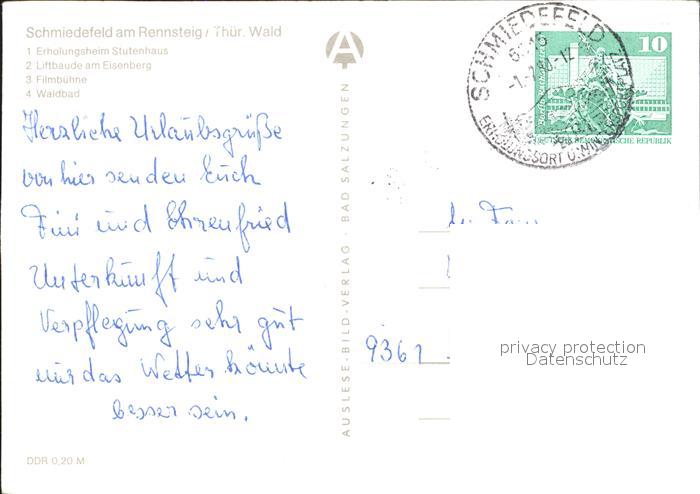 Schmiedefeld am Rennsteig / Thür. Wald
1 Erholungsheim Stutenhaus
2 Liftbaude am Eisenberg
3 Filmbühne
4 Waldbad
Herzliche Urlaubsgrüße
von hier senden Euch
Fini und Ehrenfried
Unterkunft und
Verpflegung sehr gut
nur das Wetter könnte
besser sein.
DDR 0,20 M
AUSLESE-BILD-VERLAG · BAD SALZUNGEN
SCHMIEDEFELD
ERHOLUNGSORT U.
10
DEMOKRATISCHE REPUBLIK
9361
privacy protection
Datenschutz